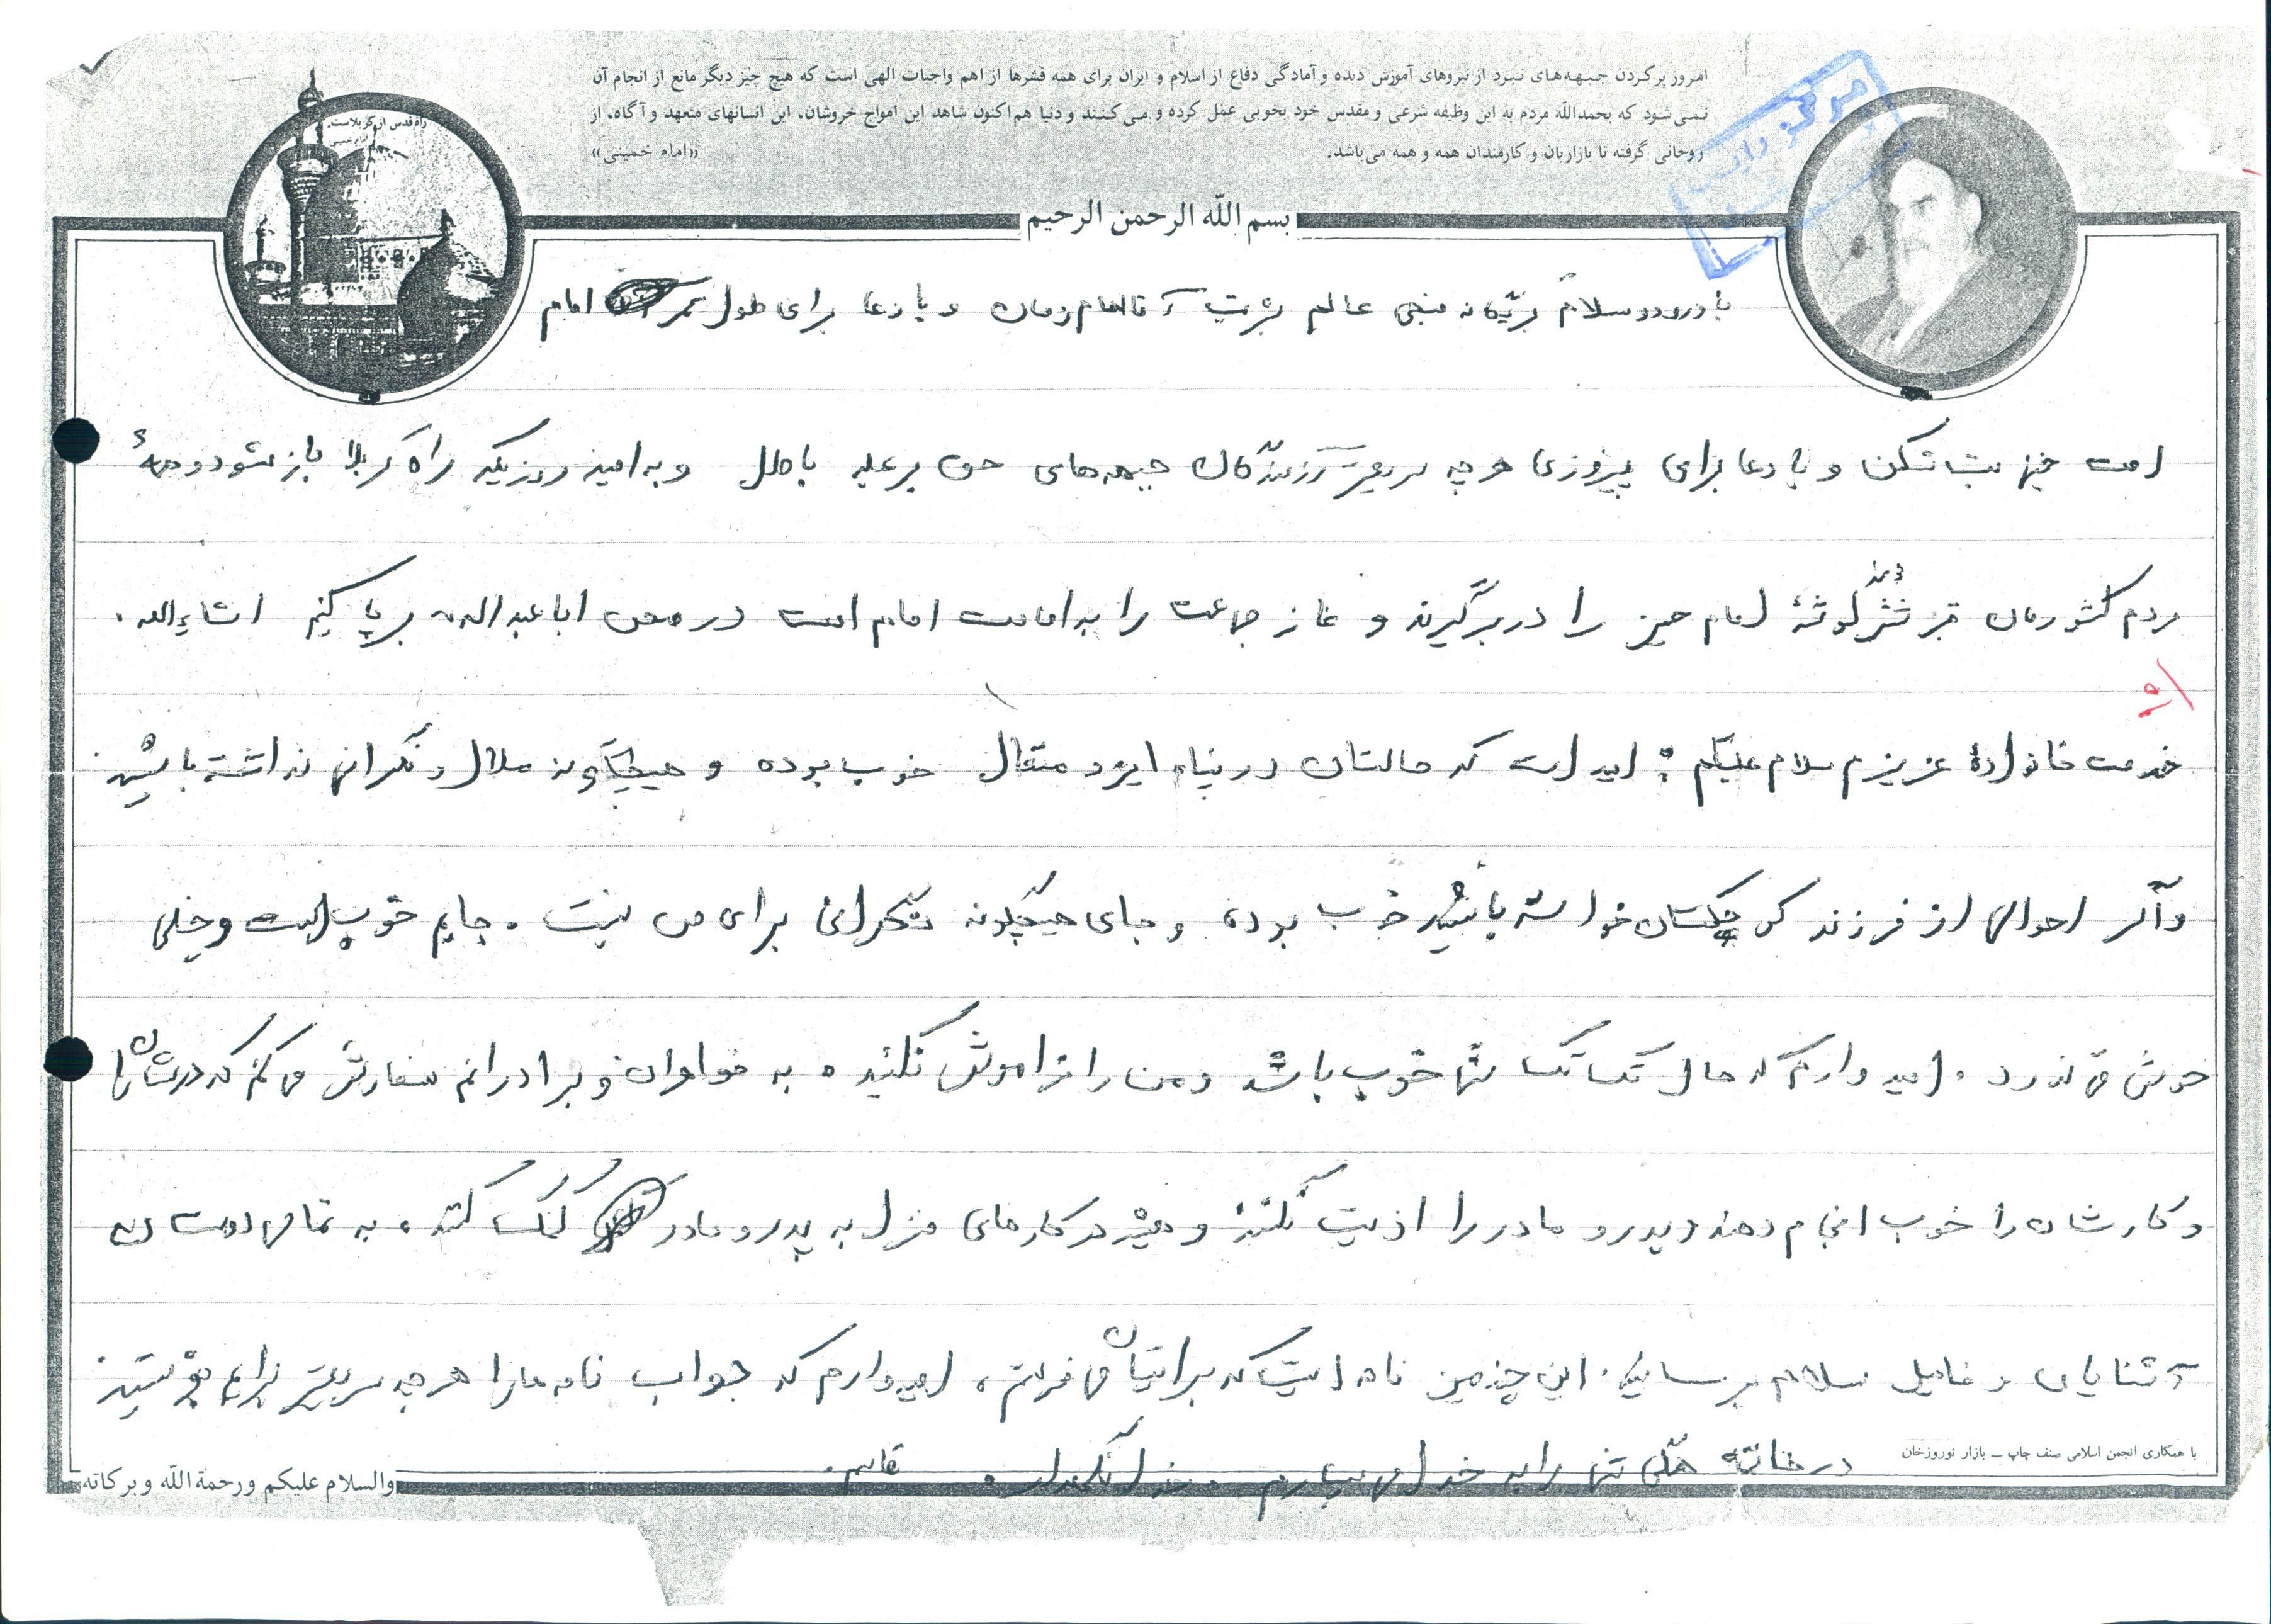 امروز پر کردن جبهه‌های نبرد از نیروهای آموزش دیده و آمادگی دفاع از اسلام و ایران برای همه قشرها از اهم واجبات الهی است که هیچ چیز دیگر مانع از انجام آن
نمی‌شود که بحمدالله مردم به این وظیفه شرعی و مقدس خود بخوبی عمل کرده و می‌کنند و دنیا هم اکنون شاهد این امواج خروشان، این انسانهای متعهد و آگاه، از
روحانی گرفته تا بازاریان و کارمندان همه و همه می‌باشد. «امام خمینی»
راه قدس از کربلاست.
بسم الله الرحمن الرحیم
با درود و سلام بر یگانه منجی عالم بشریت آقا امام زمان و با دعا برای طول عمر امام
امت خمینی بت شکن و با دعا برای پیروزی هر چه سریعتر رزمندگان جبهه‌های حق بر علیه باطل و به امید روزیکه راه کربلا باز شود و همهٔ
مردم کشورمان قبر شش گوشهٔ امام حسین را در بر گیرند و نماز جماعت را به امامت امام امت در صحن اباعبدالله بر پا کنیم انشاءالله.
خدمت خانوادهٔ عزیزم سلام علیکم؛ امید است که حالتان در پناه ایزد متعال خوب بوده و هیچگونه ملال و نگرانی نداشته باشید
و اگر احوالی از فرزند کوچکتان خواسته باشید خوب بوده و جای هیچگونه نگرانی برای من نیست. جایم خوب است و خیلی
خوش می‌گذرد. امیدوارم که حال تک تک شما خوب باشد و من را فراموش نکنید. به خواهران و برادرانم سفارش می‌کنم که درسشان را
و کارشان را خوب انجام دهند و پدر و مادر را اذیت نکنند و همیشه در کارهای منزل به پدر و مادر کمک کنند. به تمامی دوستان
آشنایان و فامیل سلام برسانید. این چندمین نامه ایست که برایتان می‌فرستم، امیدوارم که جواب نامه ما را هر چه سریعتر برایم بفرستید
در خاتمه همگی شما را به خدا می‌سپارم. خدا نگهدار. قاسم.
با همکاری انجمن اسلامی صنف چاپ - بازار نوروزخان
والسلام علیکم و رحمة الله و برکاته